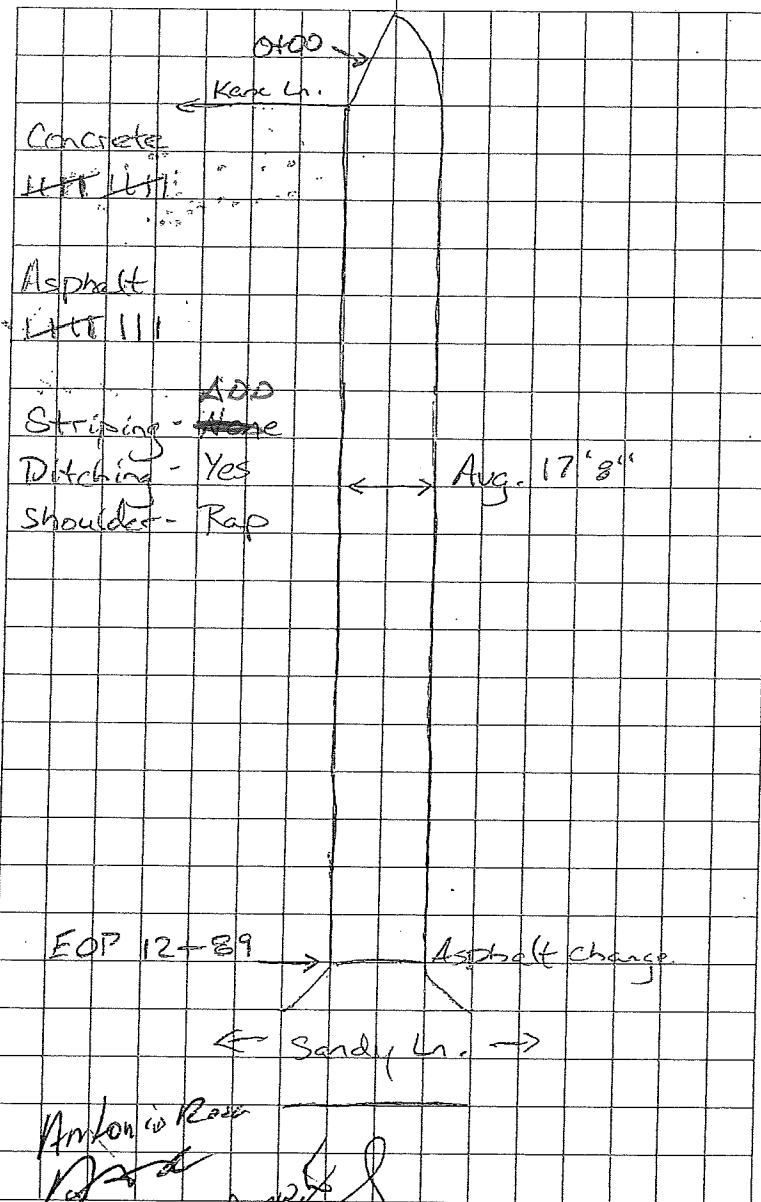 0+00
Kane Ln.
Concrete
Asphalt
ADD
Striping - None
Ditching - Yes
Shoulder - Rap
Avg. 17'8"
EOP 12+89
Asphalt change
← Sandy Ln. →
Antonio